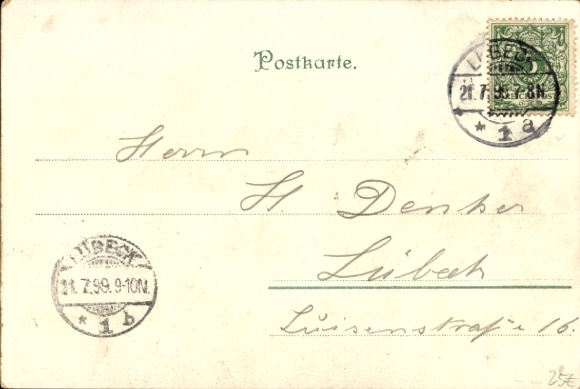 Postkarte.
LÜBECK
21.7.99.7-8N.
* 1 a
Herrn
H. Denker
Lübeck
Luisenstraße 16.
LÜBECK
21.7.99.9-10N.
* 1 b